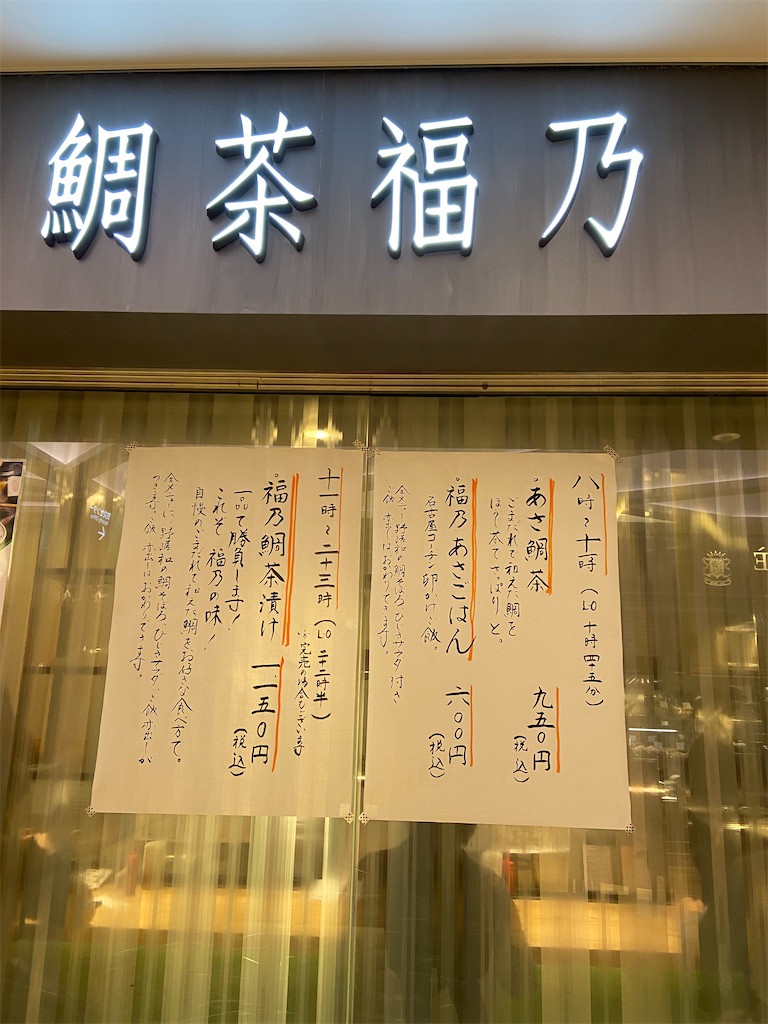 鯛茶福乃
八時〜十一時(LO 十時四十五分)
・あさ鯛茶 九五〇円
(税込)
ごまだれで和えた鯛を
ほうじ茶でさっぱりと。
・福乃あさごはん 六〇〇円
(税込)
名古屋コーチン卵かけご飯。
全メニュー 鯛そぼろ、ひじきサラダ付き
ご飯 おかわりできます。
十一時〜二十三時(LO 二十二時半)
※完売の場合もございます
・福乃鯛茶漬け 一、一五〇円
(税込)
一品で勝負します!
これぞ福乃の味!
自慢のごまだれで和えた鯛をお好きな食べ方で。
全メニューに 鯛そぼろ、ひじきサラダ、ご飯 が
つきます。ご飯 はおかわりできます。